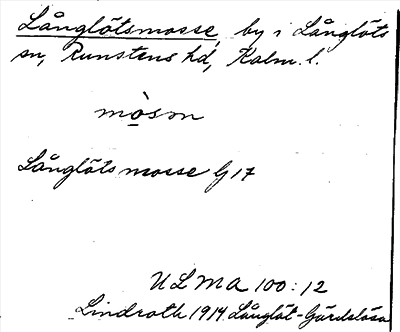 Långlötsmosse, by i Långlöts
sn, Runstens hd, Kalm. l.
mòsоn
Långlöts mosse G 17
ULMA 100:12
Lindroth 1914 Långlöt-Gärdslösa